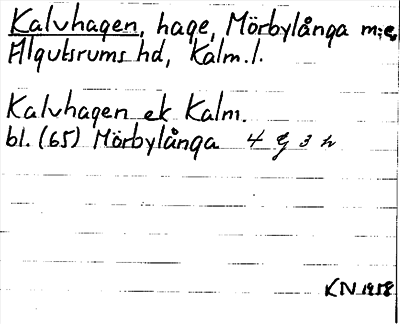 Kalvhagen, hage, Mörbylånga m:e,
Algutsrums hd, Kalm. l.
Kalvhagen ek Kalm.
bl. (65) Mörbylånga 4 G 3 h
KN 1958